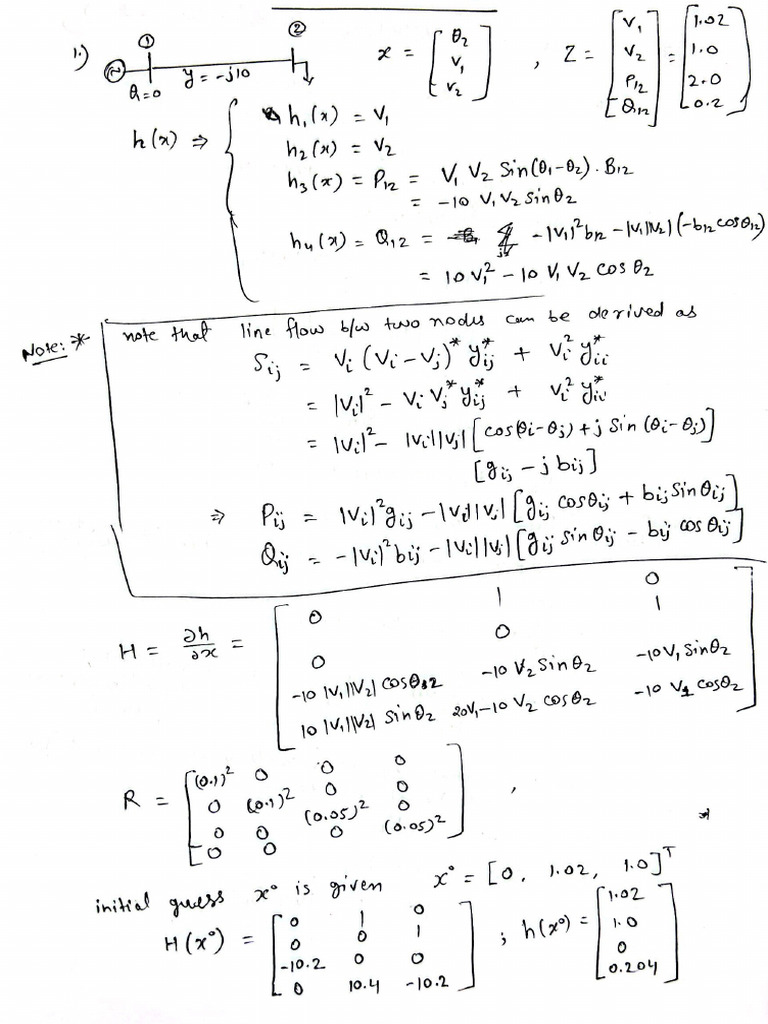 1.) ① ② x = [θ₂ V₁ V₂] , Z = [V₁ V₂ P₁₂ Q₁₂] = [1.02 1.0 2.0 0.2]
θ₁=0 y = -j10
h(x) ⇒ { h₁(x) = V₁
h₂(x) = V₂
h₃(x) = P₁₂ = V₁ V₂ Sin(θ₁-θ₂) . B₁₂
= -10 V₁ V₂ sinθ₂
h₄(x) = Q₁₂ = -|V₁|² b₁₂ - |V₁||V₂| (-b₁₂ cosθ₁₂)
= 10 V₁² - 10 V₁ V₂ cos θ₂
Note:* note that line flow b/w two nodes can be derived as
Sᵢⱼ = Vᵢ (Vᵢ - Vⱼ)* yᵢⱼ* + Vᵢ² yᵢᵢ*
= |Vᵢ|² - Vᵢ Vⱼ* yᵢⱼ* + Vᵢ² yᵢᵢ*
= |Vᵢ|² - |Vᵢ||Vⱼ| [cos(θᵢ-θⱼ) + j Sin (θᵢ-θⱼ)]
[gᵢⱼ - j bᵢⱼ]
⇒ Pᵢⱼ = |Vᵢ|² gᵢⱼ - |Vᵢ||Vⱼ| [gᵢⱼ cosθᵢⱼ + bᵢⱼ Sinθᵢⱼ]
Qᵢⱼ = -|Vᵢ|² bᵢⱼ - |Vᵢ||Vⱼ| [gᵢⱼ sinθᵢⱼ - bᵢⱼ cos θᵢⱼ]
H = ∂h/∂x = [ 0 1 0
0 0 1
-10 |V₁||V₂| cosθ₂ -10 V₂ Sinθ₂ -10 V₁ Sinθ₂
10 |V₁||V₂| sinθ₂ 20V₁-10 V₂ cosθ₂ -10 V₁ cosθ₂ ]
R = [ (0.1)² 0 0 0
0 (0.1)² 0 0
0 0 (0.05)² 0
0 0 0 (0.05)² ] ,
initial guess x⁰ is given x⁰ = [0, 1.02, 1.0]ᵀ
H(x⁰) = [ 0 1 0 ; h(x⁰) = [ 1.02
0 0 1 1.0
-10.2 0 0 0
0 10.4 -10.2 ] 0.204 ]